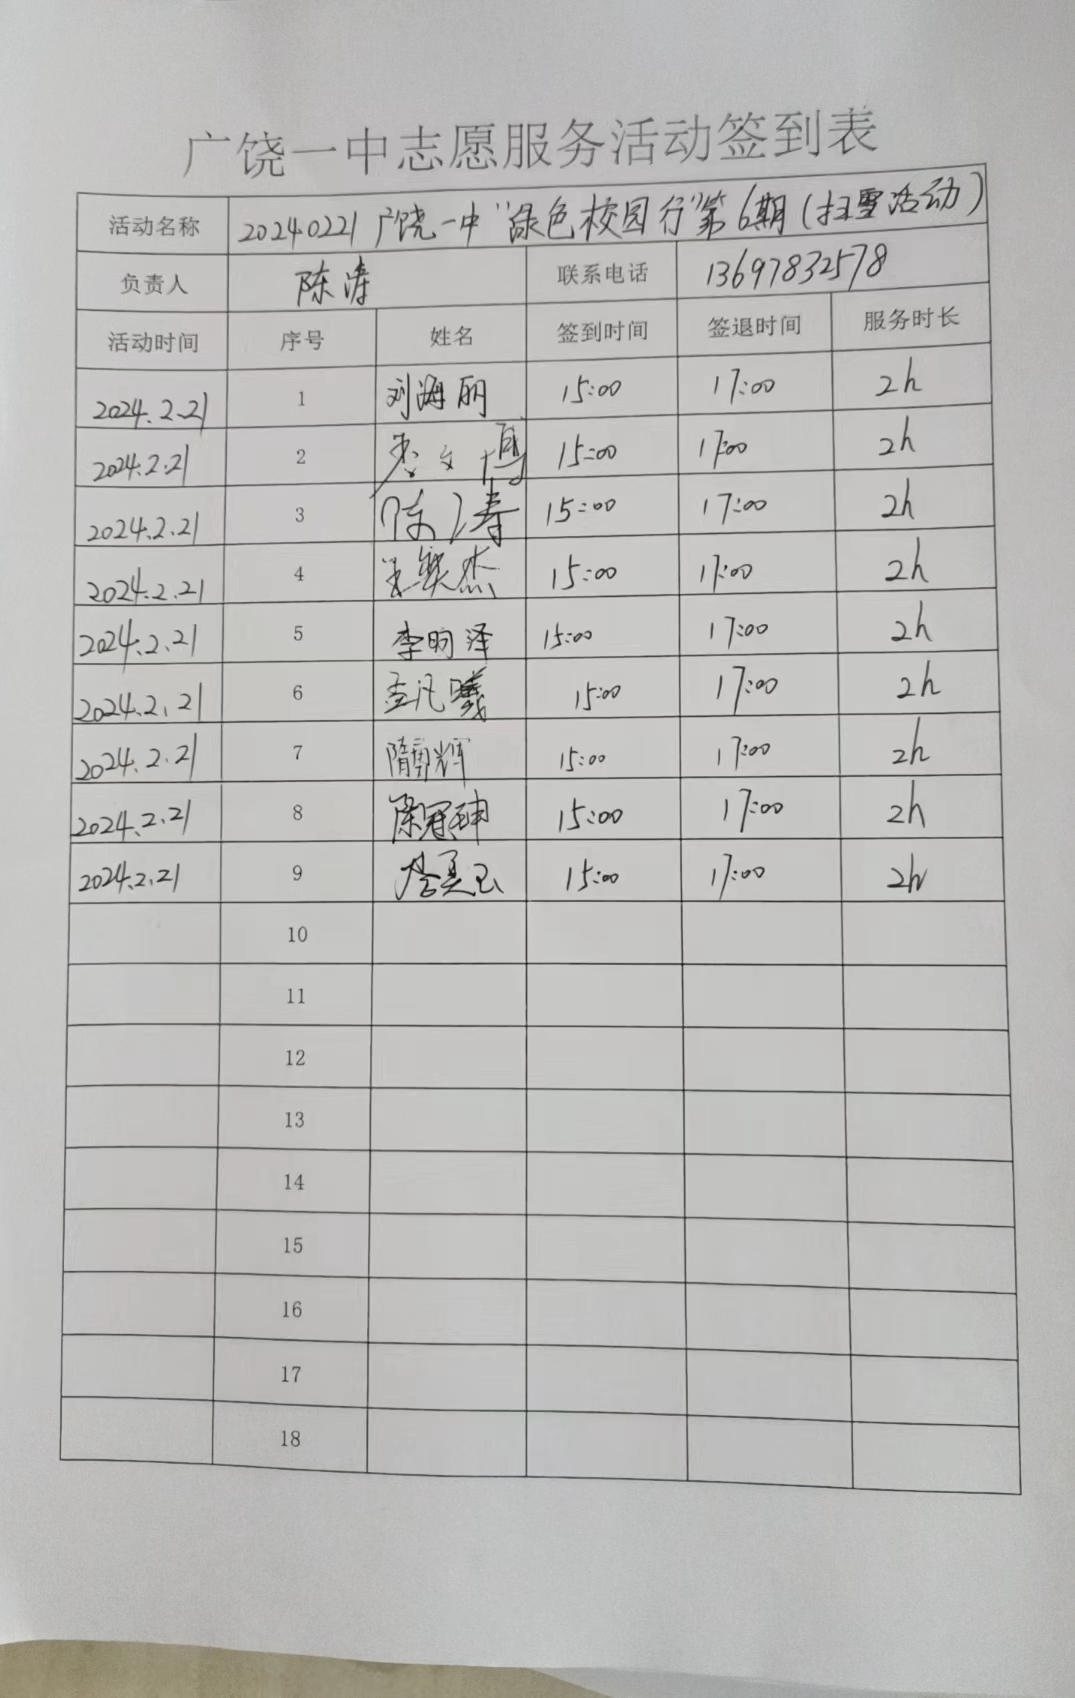 广饶一中志愿服务活动签到表
活动名称 20240221广饶一中"绿色校园行"第6期(扫雪活动)
负责人 陈涛 联系电话 13697832578
活动时间 序号 姓名 签到时间 签退时间 服务时长
2024.2.21 1 刘海丽 15:00 17:00 2h
2024.2.21 2 15:00 17:00 2h
2024.2.21 3 陈涛 15:00 17:00 2h
2024.2.21 4 15:00 17:00 2h
2024.2.21 5 李昀泽 15:00 17:00 2h
2024.2.21 6 15:00 17:00 2h
2024.2.21 7 15:00 17:00 2h
2024.2.21 8 15:00 17:00 2h
2024.2.21 9 15:00 17:00 2h
10
11
12
13
14
15
16
17
18